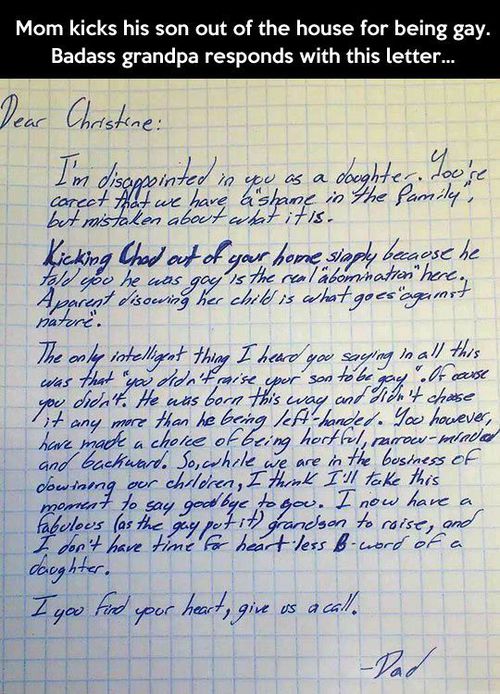 Mom kicks his son out of the house for being gay.
Badass grandpa responds with this letter...
Dear Christine:
I'm disappointed in you as a daughter. You're
corect that we have a "shame in the family",
but mistaken about what it is.
Kicking Chad out of your home simply because he
told you he was gay is the real "abomination" here.
A parent disowing her child is what goes "against
nature".
The only intelligent thing I heard you saying in all this
was that "you didn't raise your son to be gay". Of couse
you didn't. He was born this way and didn't chose
it any more than he being left-handed. You however,
have made a choice of being hortful, narrow-minded
and backward. So, while we are in the business of
dowining our children, I think I'll take this
moment to say goodbye to you. I now have a
fabulous (as the gay put it) grandson to raise, and
I don't have time for heart-less B-word of a
daughter.
I you find your heart, give us a call.
-Dad